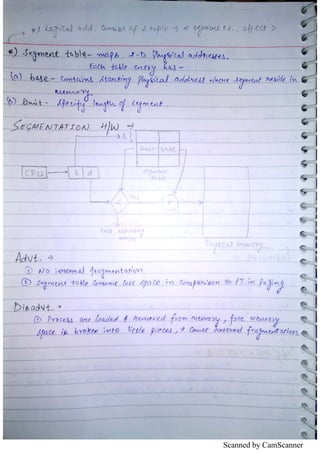 *) Logical add. consist of 2 tuple → < segment no., offset >
*) Segment table - maps 2-D Physical addresses.
Each table entry has -
(a) base - Contains starting physical address where segment reside in
memory
(b) limit - Specify length of segment
SEGMENTATION H/W →
s
limit base
CPU s d
segment table
< yes +
no
Physical memory
Advt. →
① No internal fragmentation
② Segment table consume less space in comparison to PT in Paging
Disadvt. →
① Process are loaded & removed from memory, free memory
space is broken into little pieces, & cause external fragmentation
Scanned by CamScanner